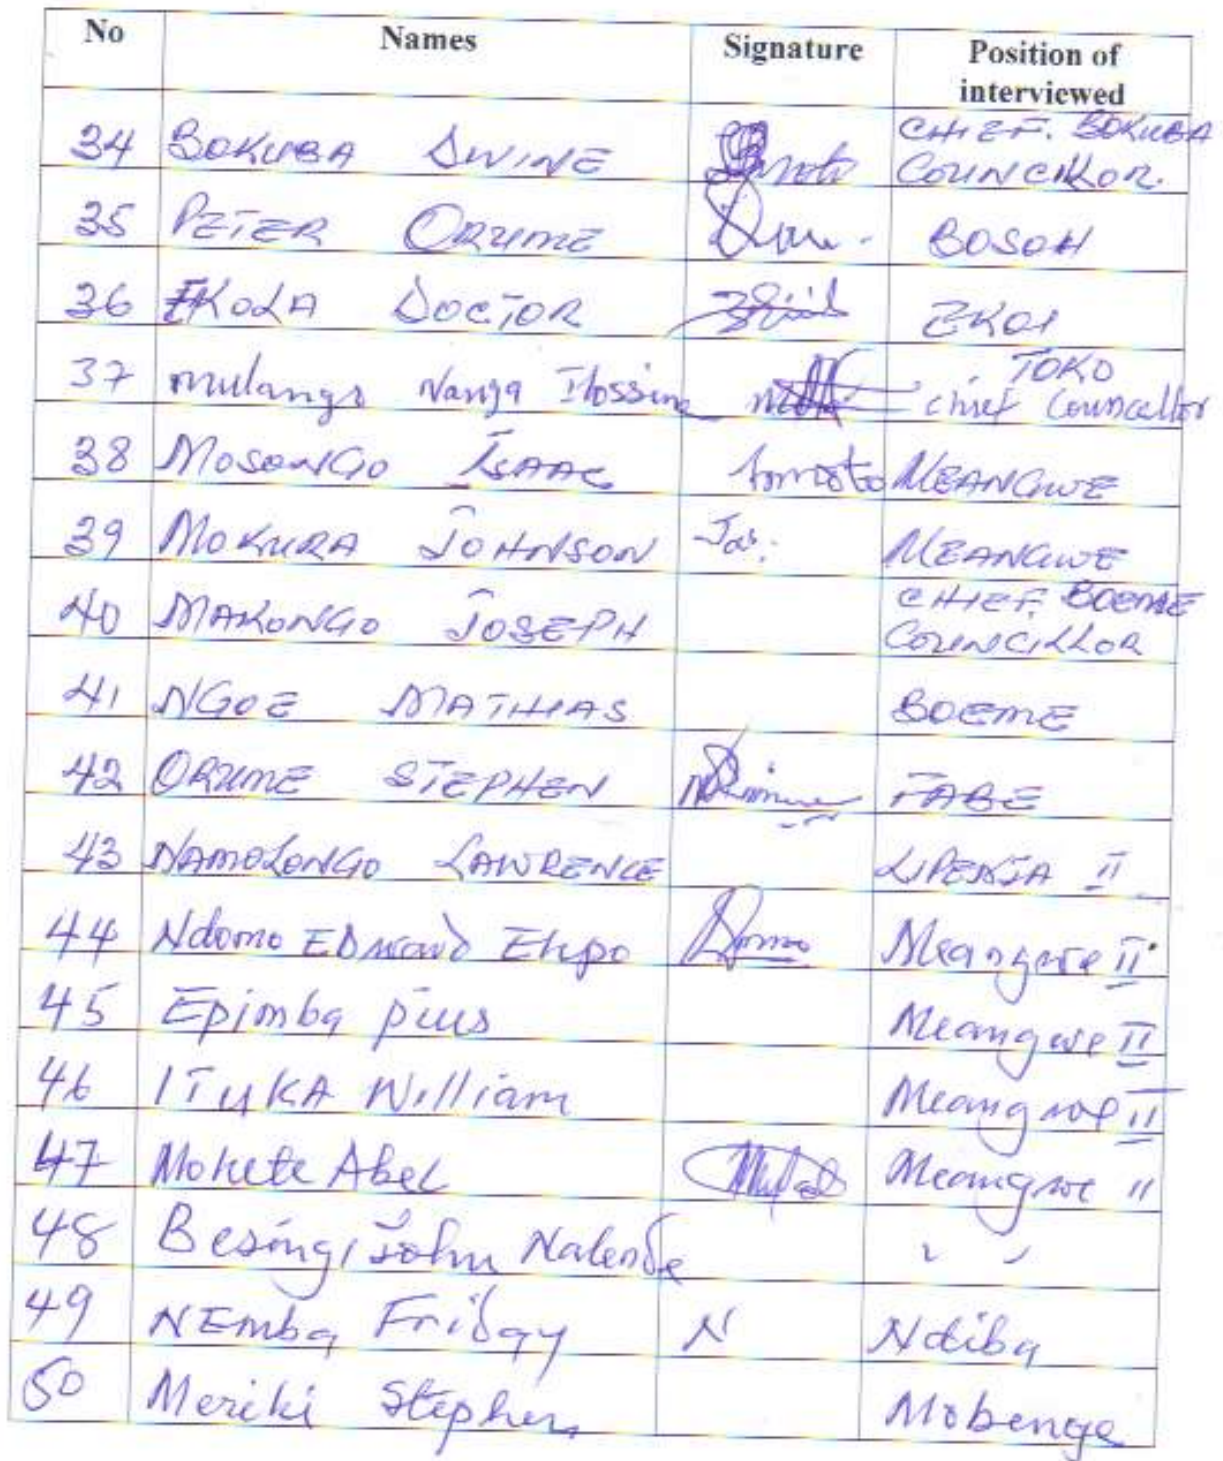 No Names Signature Position of interviewed
34 BOKUBA DWINE CHIEF. BOKUBA COUNCILLOR.
35 PETER ORUME BOSOH
36 EKOLA DOCTOR EKOI
37 mulango Nanga TOKO chief Councellor
38 MOSONGO ISAAC MEANGWE
39 MOKURA JOHNSON Jas. MEANGWE
40 MAKONGO JOSEPH CHIEF. BOEME COUNCILLOR
41 NGOE MATHIAS BOEME
42 ORUME STEPHEN FABE
43 NAMOLONGO LAWRENCE LIPENJA II
44 Ndomo EDMOND Ekpo Meangwe II
45 Epimba pius Meangwe II
46 ITUKA William Meangwe II
47 Mokete Abel Meangwe II
48 Besingi John Nalende " "
49 NEmba Friday N Ndiba
50 Meriki Stephen Mobenge